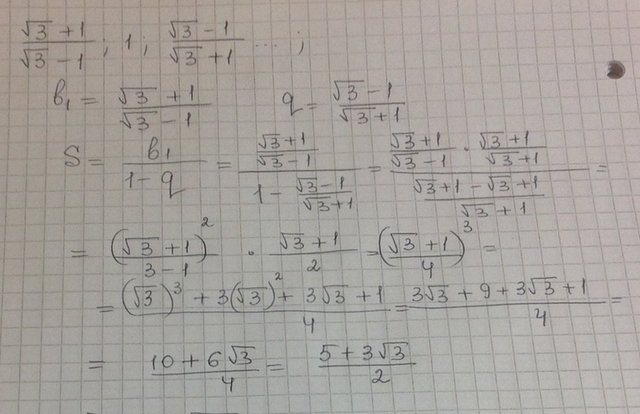 (√3 + 1)/(√3 − 1); 1; (√3 − 1)/(√3 + 1) ...;
b₁ = (√3 + 1)/(√3 − 1) q = (√3 − 1)/(√3 + 1)
S = b₁/(1 − q) = ((√3 + 1)/(√3 − 1))/(1 − (√3 − 1)/(√3 + 1)) = ((√3 + 1)/(√3 − 1) · (√3 + 1)/(√3 + 1))/((√3 + 1 − √3 + 1)/(√3 + 1)) =
= (√3 + 1)²/(3 − 1) · (√3 + 1)/2 = (√3 + 1)³/4 =
= ((√3)³ + 3(√3)² + 3√3 + 1)/4 = (3√3 + 9 + 3√3 + 1)/4 =
= (10 + 6√3)/4 = (5 + 3√3)/2